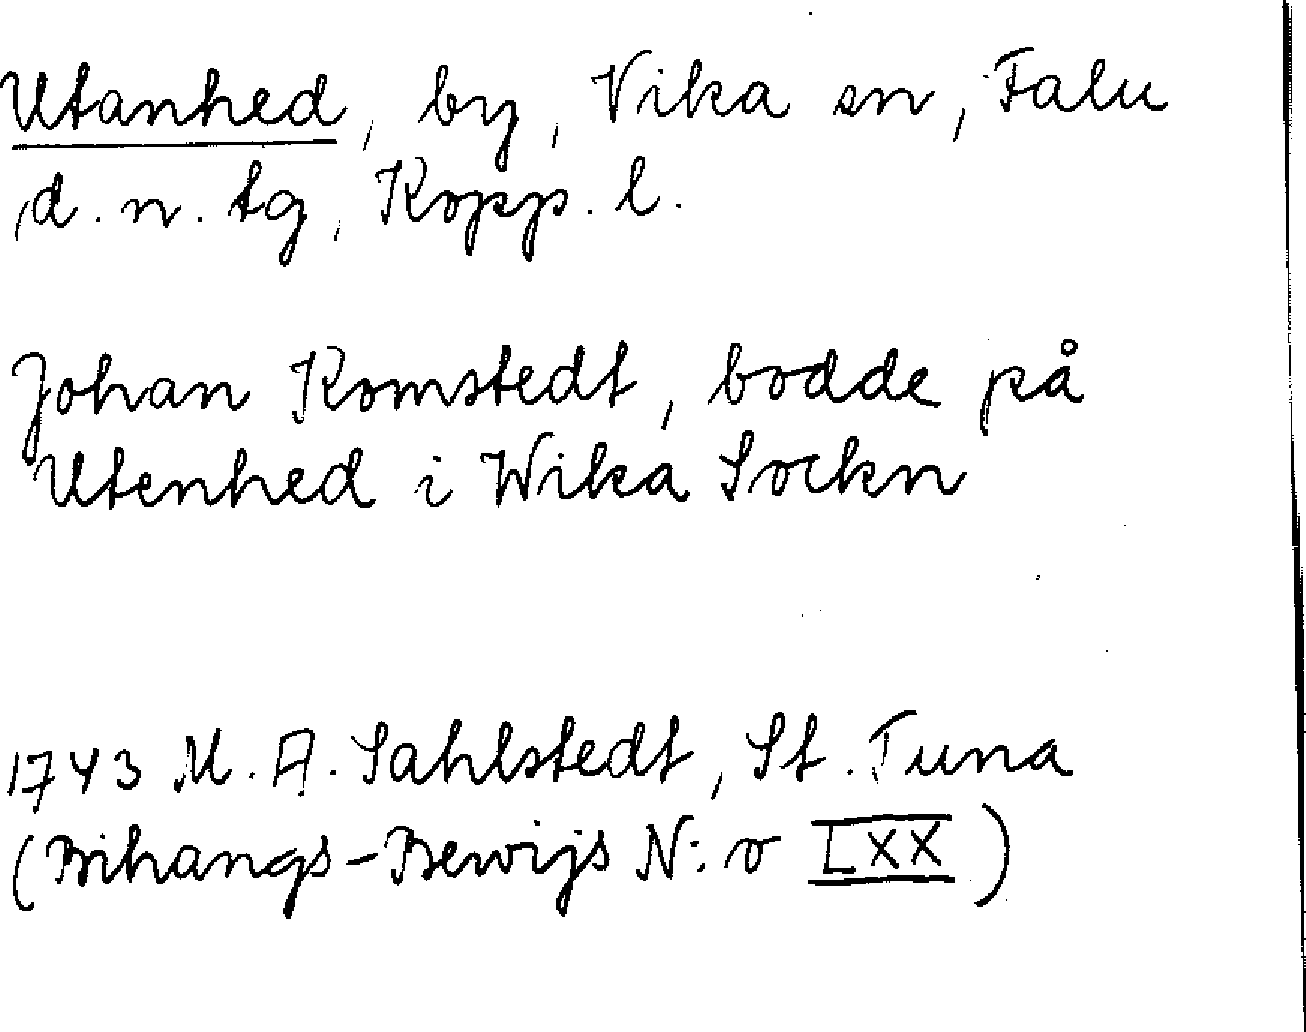 Utanhed, by, Vika sn, Falu
d. n. tg, Kopp. l.
Johan Komstedt, bodde på
Utenhed i Wika Sockn
1743 M. A. Sahlstedt, St. Tuna
(Bihangs-Bewijs N:o LXX)